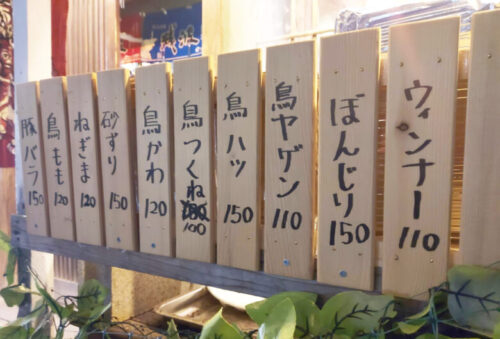 ウィンナー 110
ぼんじり 150
鳥ヤゲン 110
鳥ハツ 150
鳥つくね 100
鳥かわ 120
砂ずり 150
ねぎま 120
鳥もも 120
豚バラ 150